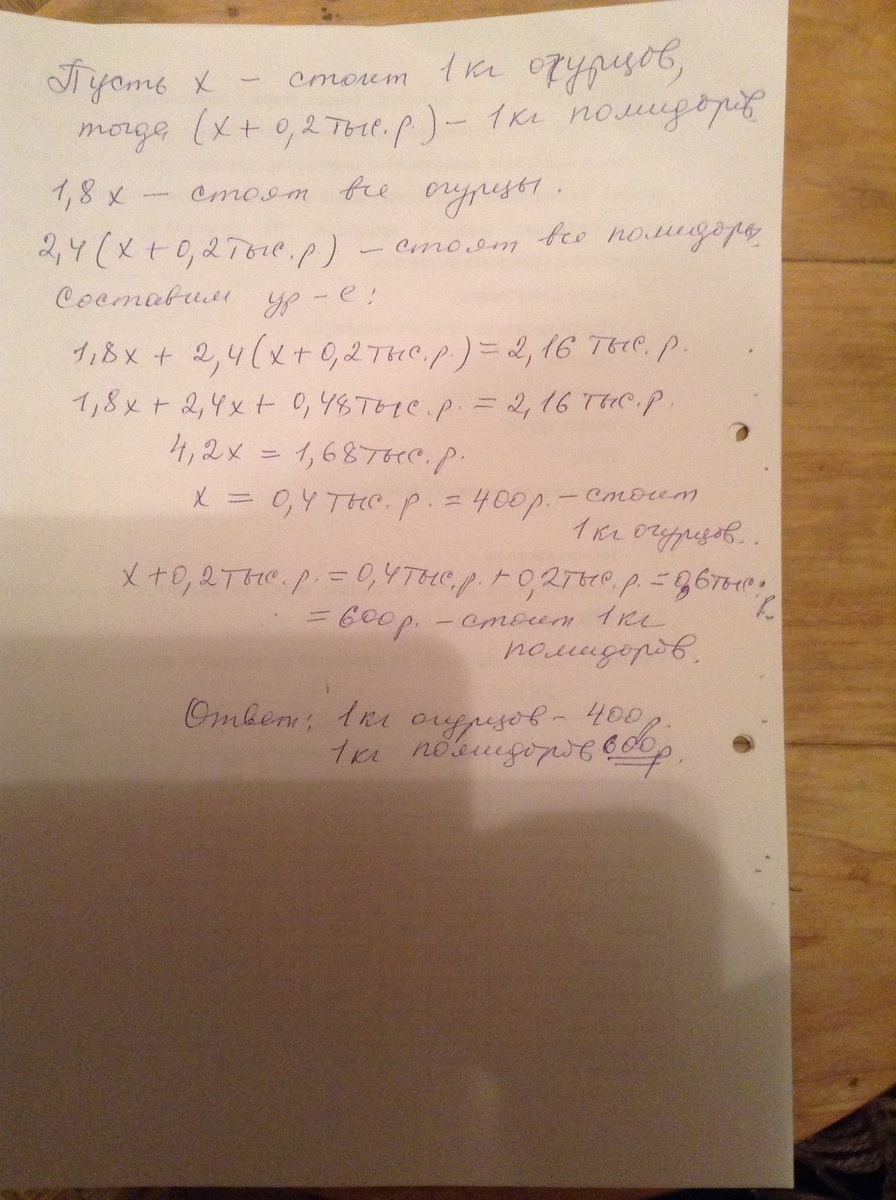 Пусть x – стоит 1 кг огурцов,
тогда (x + 0,2 тыс. р.) – 1 кг помидоров
1,8 x – стоят все огурцы.
2,4 (x + 0,2 тыс. р) – стоят все помидоры.
Составим ур-е:
1,8x + 2,4(x + 0,2 тыс. р.) = 2,16 тыс. р.
1,8x + 2,4x + 0,48 тыс. р. = 2,16 тыс. р.
4,2x = 1,68 тыс. р.
x = 0,4 тыс. р. = 400 р. – стоит
1 кг огурцов.
x + 0,2 тыс. р. = 0,4 тыс. р. + 0,2 тыс. р. = 0,6 тыс. р.
= 600 р. – стоит 1 кг
помидоров.
Ответ: 1 кг огурцов – 400 р.
1 кг помидоров 600 р.